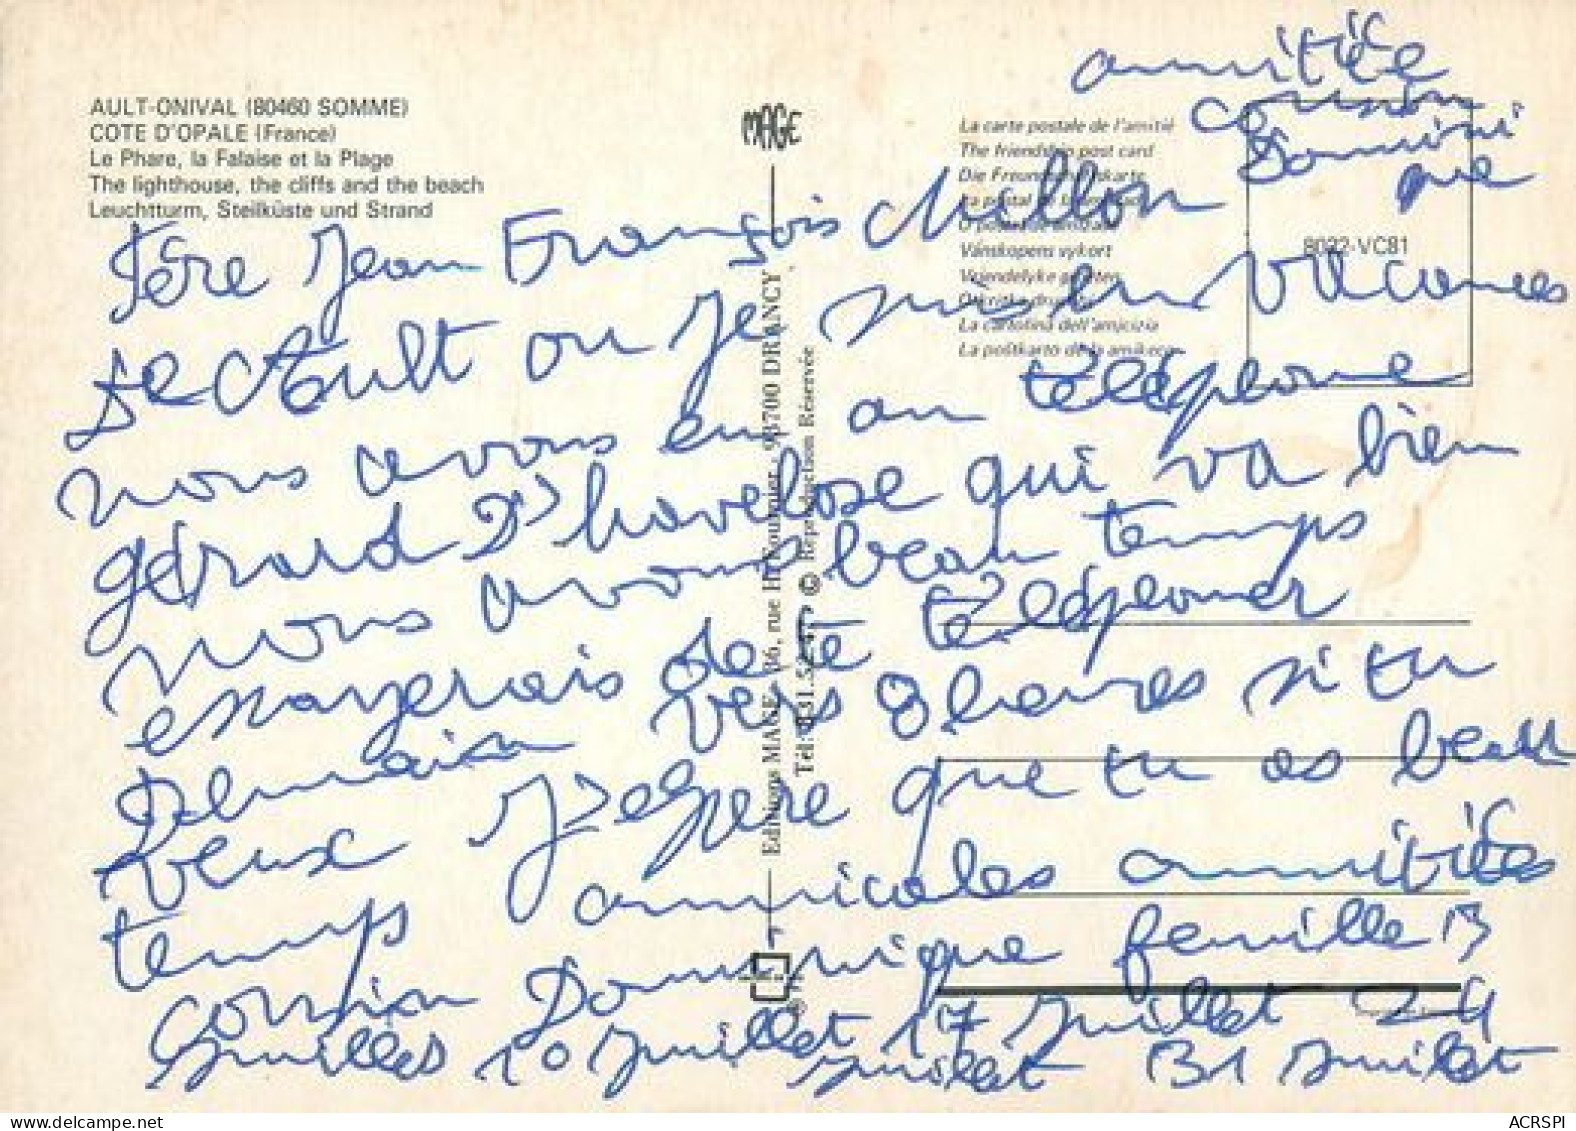 AULT-ONIVAL (80460 SOMME)
COTE D'OPALE (France)
Le Phare, la Falaise et la Plage
The lighthouse, the cliffs and the beach
Leuchtturm, Steilküste und Strand
MAGE
La carte postale de l'amitié
The friendship post card
Die Freundschaftskarte
Vánskopens vykort
La cartolina dell'amicizia
La poŝtkarto de la amikeco
8022-VC81
Editions MAGE - 36, rue H. Fournier - 93700 DRANCY
© Reproduction Réservée
amitiée
coussin
Domini
que
Père Jean François Millon
de Ault ou je suis en vacances
nous avons eu au télépone
gérard D'havelose qui va bien
nous avons beau temps
essayerais de te téléponer
Demain vers 8 heures si tu
veux J'espère que tu as beau
temps amicales amitiées
coussin Dominique feuille 13
juilles 10 juillet 17 juillet 24
juillet 31 juillet
ACRSPI